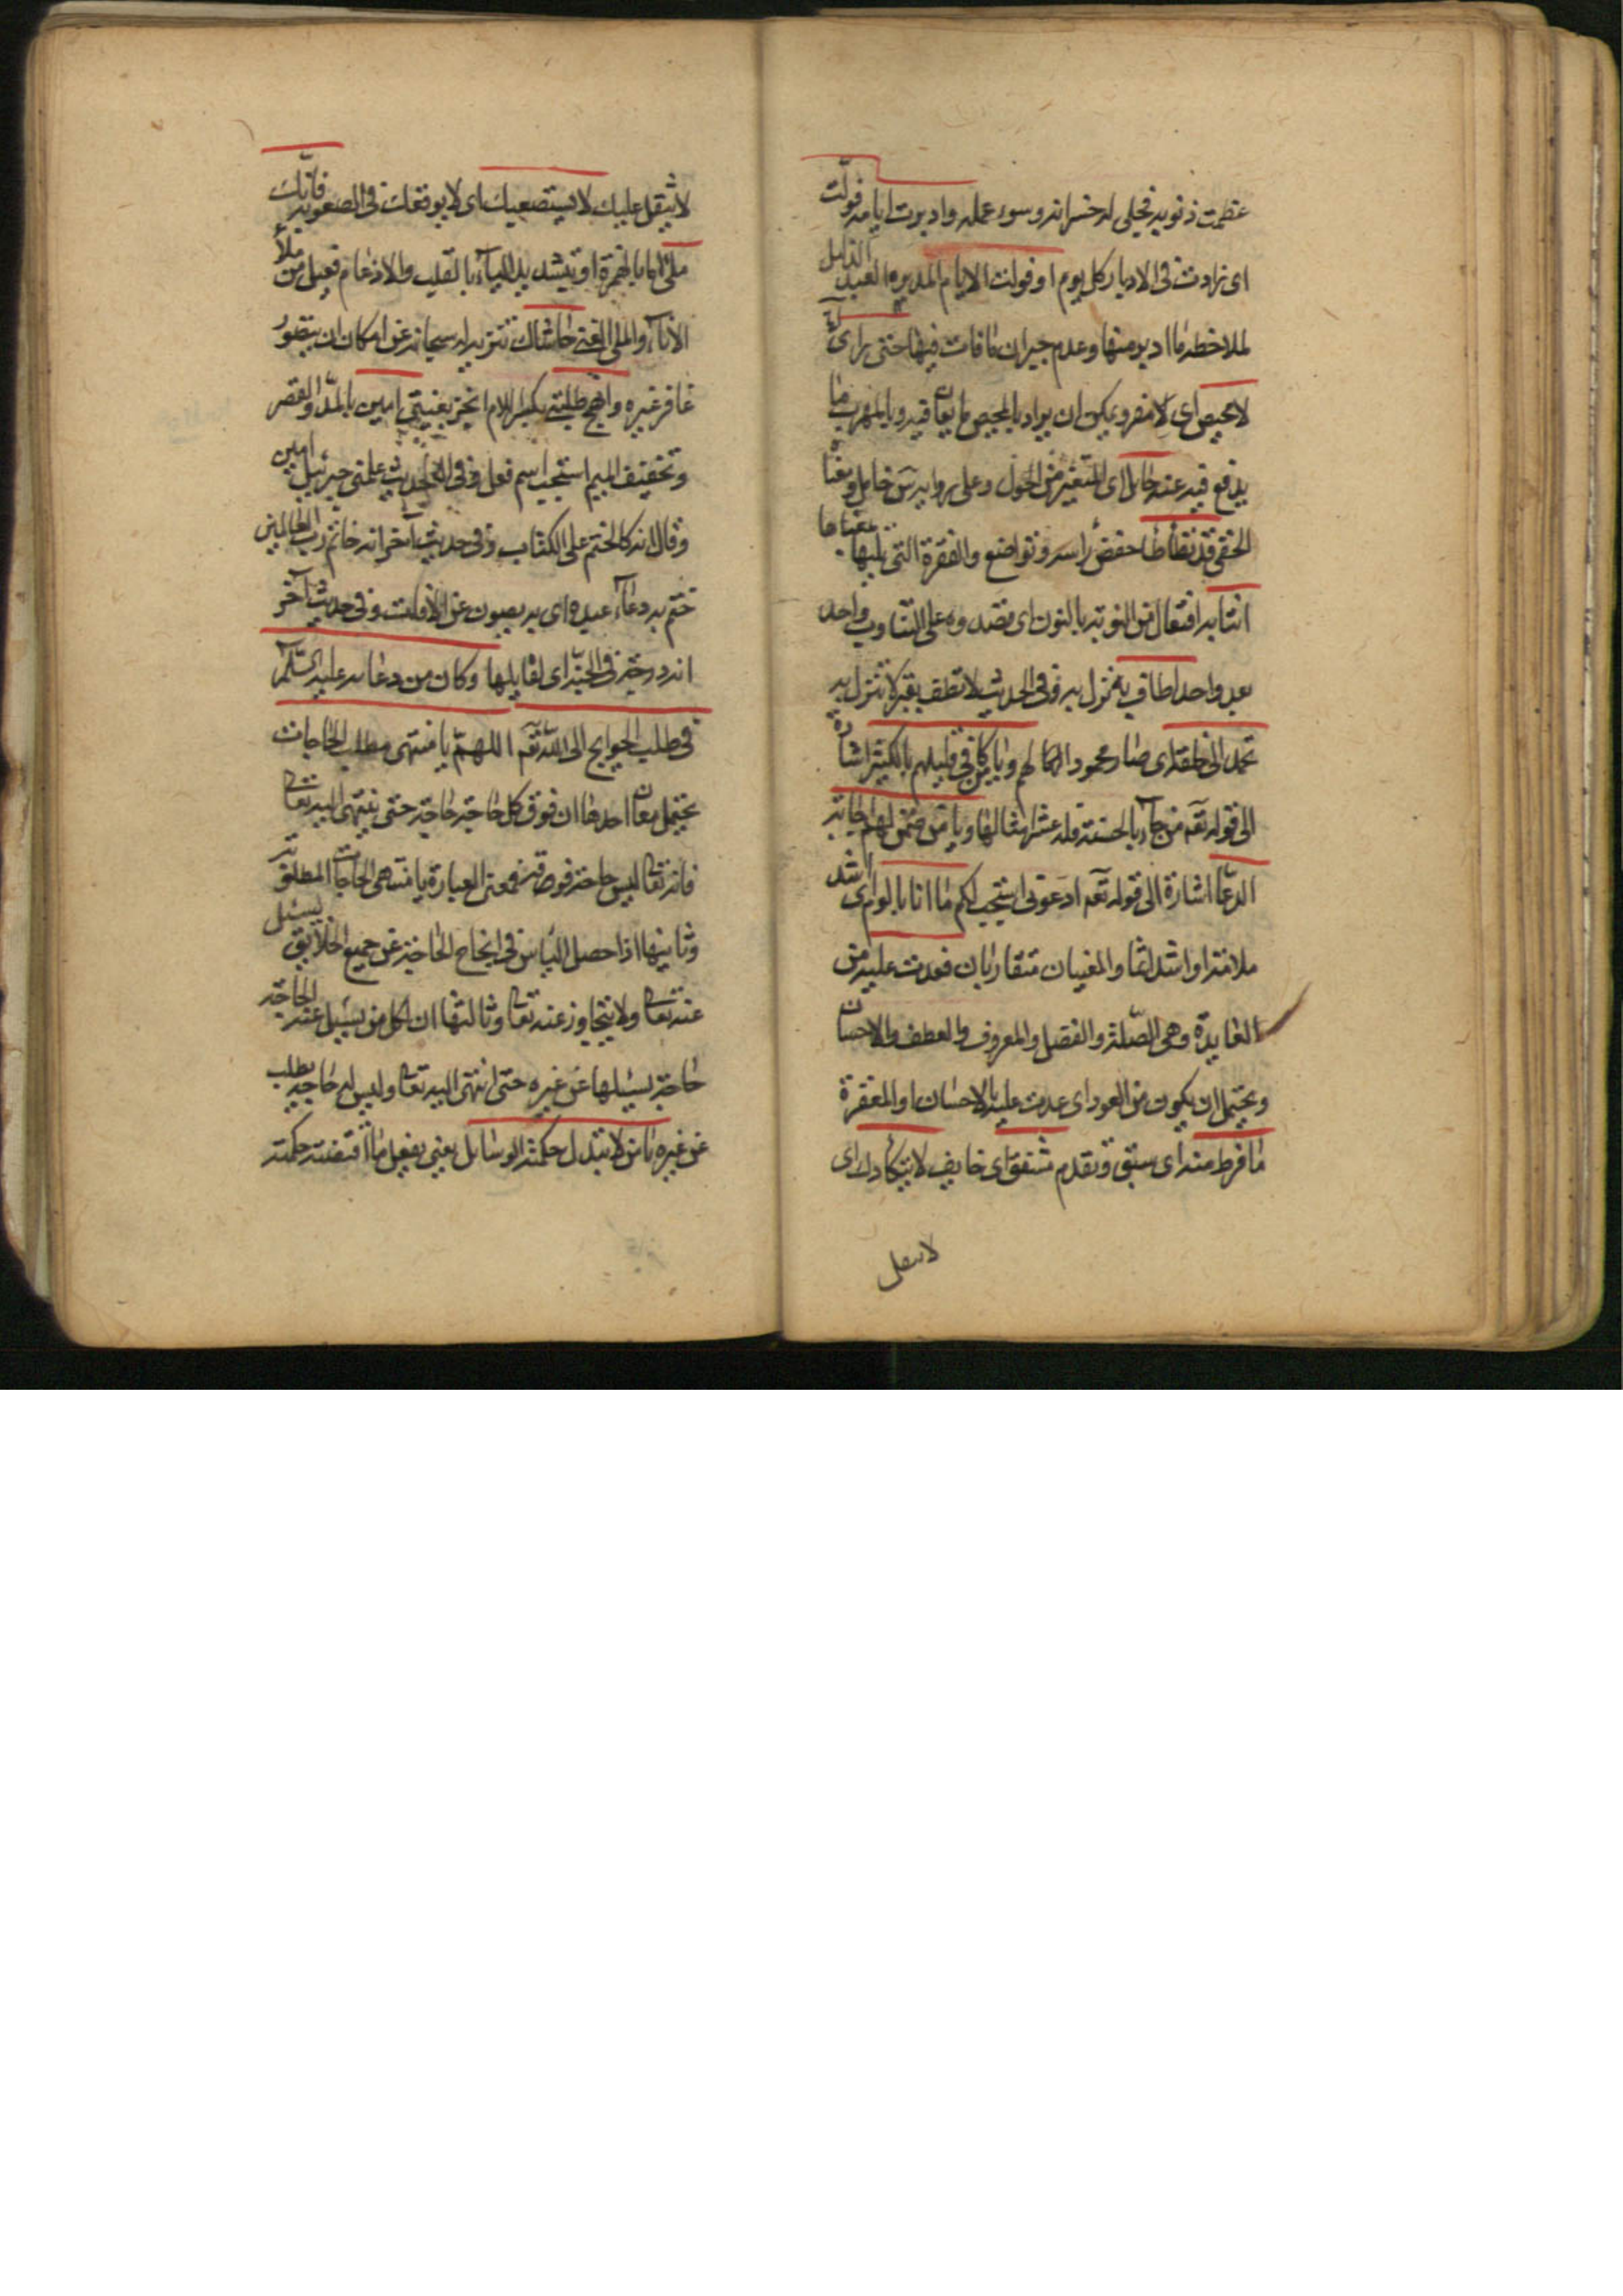 عظمت ذنوبه فجلى له خسرانه وسوء عمله وادبرت ايامه فولت
اى زادت فى الادبار كل يوم او فولت الايام المدبرة العبد الذليل
لملاحظة ما ادبر منها وعدم جبران ما فات فيها حتى اذا رأى
لا محيص اى لا مفر ويمكن ان يراد بالمحيص ما يعاق فيه وبالمهرب ما
يدفع فيه عنه حائل اى المتغير من الحول وعلى رواية س خامل ومعناه
الخفى قد تطأطأ خفض رأسه وتواضع والفقرة التى يليها معناها
انتابه افتعال من النوبة بالنون اى قصده وه على التناوب واحد
بعد واحد اطاف به نزل به وفى الحديث لا تطف بقبر لا تنزل به
تحمد الى خلقه اى صار محمودا لهم ويا من كافى قليلهم بالكثير اشارة
الى قوله تعه من جاء بالحسنة فله عشر امثالها ويا من ضمن لهم اجابة
الدعا اشارة الى قوله تعه ادعونى استجب لكم ما انا بالوم اى اشد
ملامة او اشد لئما والمعنيان متقاربان فعدت عليه من
العايدة وهى الصلة والفضل والمعروف والعطف والاحسان
ويحتمل ان يكون من العود اى عدت عليه بالاحسان او المغفرة
ما فرط منه اى سبق وتقدم مشفق اى خايف لا يتكأدك اى
لا يثقل
لا يثقل عليك لا يستصعبك اى لا يوقعك فى الصعوبة فانك
ملئ اما بالهمزة او بتشديد الياء بالقلب والادغام فعيل من ملأ
الاناء والملى الغنى حاشاك تنزيه له سبحانه عن امكان ان يتصور
غافر غيره وانجح طلبتى بكسر اللام انجز بغيتى امين بالمد والقصر
وتخفيف الميم استجب اسم فعل وفى الحديث علمنى جبرئيل امين
وقال انه كالختم على الكتاب وفى حديث آخر انه خاتم رب العالمين
ختم به دعاء عبده اى به يصون عن الآفات وفى حديث آخر
انه درجة فى الجنة اى لقايلها وكان من دعائه عليه السلام
فى طلب الحوايج الى الله تعه اللهم يا منتهى مطلب الحاجات
يحتمل معان احدها ان فوق كل حاجة حاجة حتى ينتهى اليه تعالى
فانه تعالى ليس حاجة فوقه فمعنى العبارة يا منتهى الحاجات المطلوبة
وثانيها اذا حصل الياس فى انجاح الحاجة عن جميع الخلايق يسئل
عنه تعالى ولا يتجاوز عنه تعالى وثالثها ان كل من يسئل عنه الحاجة
حاجة يسئلها عن غيره حتى انتهى اليه تعالى وليس له حاجة يطلب
عن غيره يا من لا تبدل حكمته الوسائل يعنى يفعل ما اقتضته حكمته